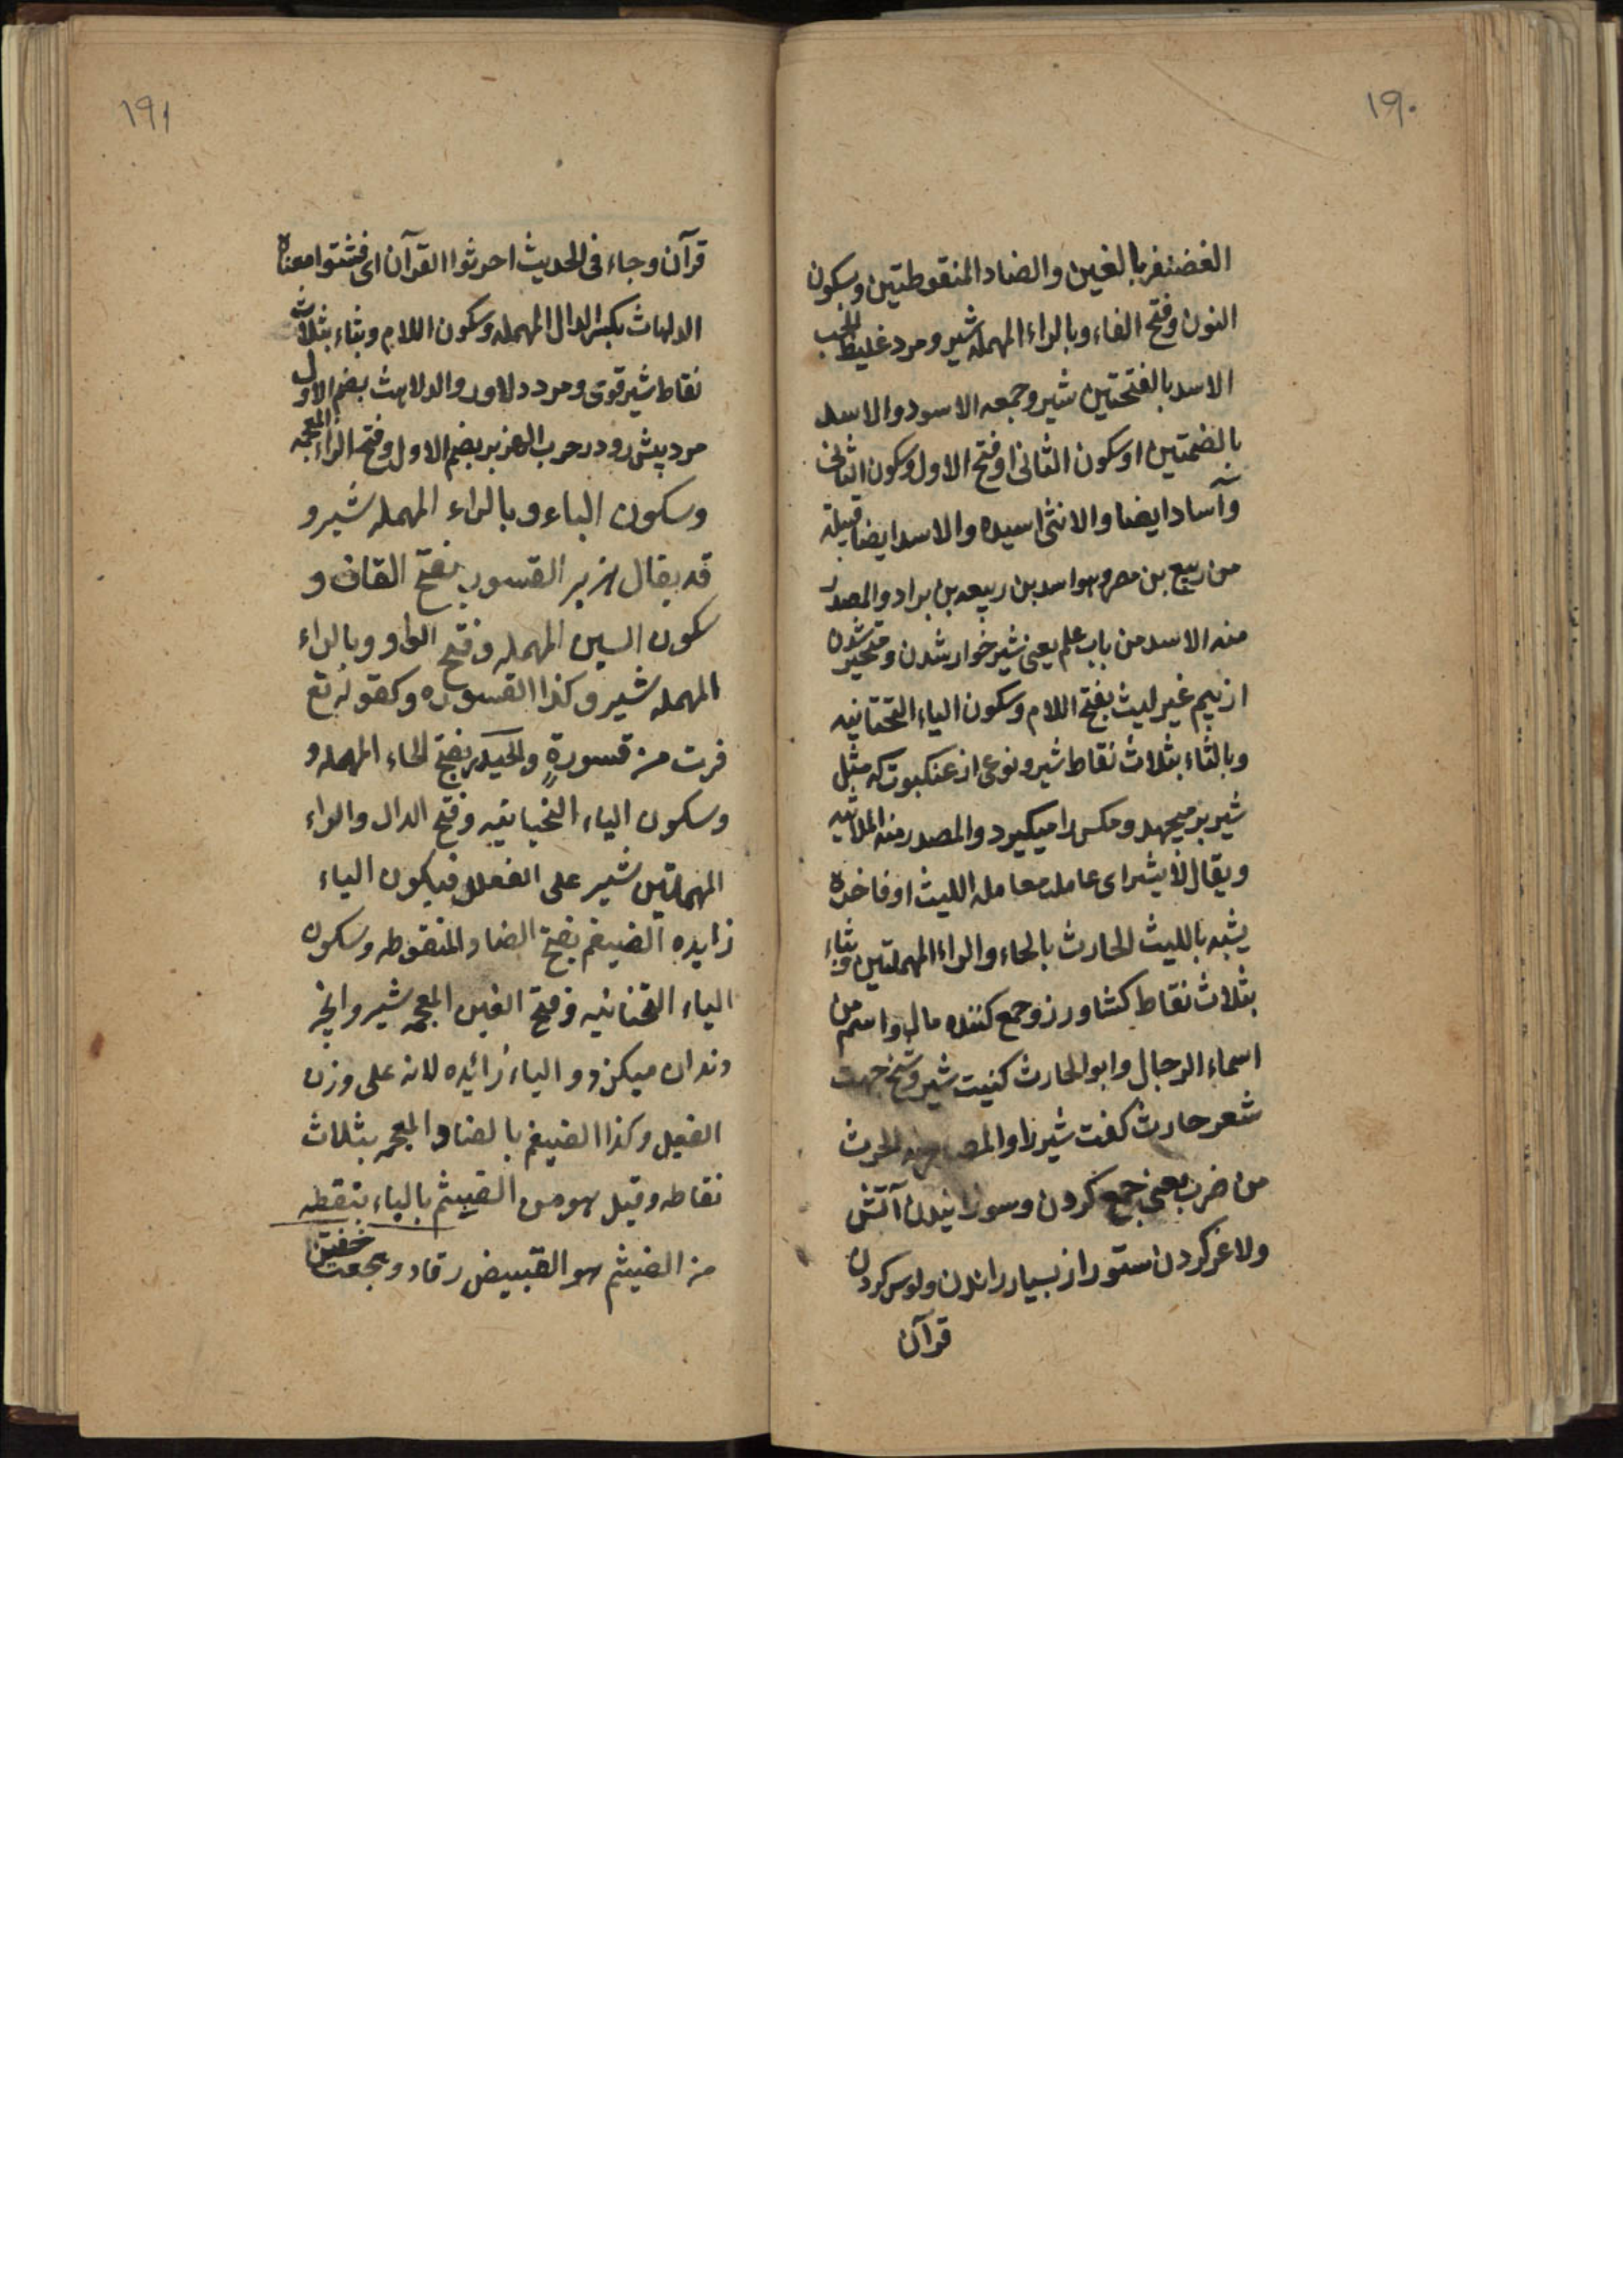 ۱۹۰
الغضنفر بالغین والضاد المنقوطتین وبسکون
النون وفتح الفاء وبالراء المهمله شیر ومرد غلیظ
الاسد بالفتحتین شیر وجمعه الاسود والاسد
بالضمتین اوسکون الثانی اوفتح الاول وسکون الثانی
وآساد ایضا والانثی اسیده والاسد ایضا قبیلة
من ربیع بن مضر وهو اسد بن ربیعه بن براد والمصدر
منه الاسد من باب علم یعنی شیر خوار شدن ومتحیر شدن
از بیم غیر لیث بفتح اللام وسکون الیاء التحتانیه
وبالثاء بثلاث نقاط شیر ونوعی از عنکبوت که مثل
شیر بر میجهد ومکس را میکیرد والمصدر منه الملایثه
ویقال لایشه ای عامله معامله اللیث اوفاخره
یشبه باللیث الحارث بالحاء والراء المهملتین وبثاء
بثلاث نقاط کشاورز وجمع کننده مال واسم من
اسماء الرجال وابو الحارث کنیت شیر وشیخ جهت
شعر حارث کفت شیر را والمصدر منه الحرث
من ضرب یعنی جمع کردن وسوزانیدن آتش
ولاغر کردن ستور از بسیار راندن ودرس کردن
قرآن
۱۹۱
قرآن وجاء فی الحدیث احرثوا القرآن ای فتشوا معناه
الدلهاث بکسر الدال المهمله وسکون اللام وبثاء بثلاث
نقاط شیر قوی ومرد دلاور والدلاهث بضم الاول
مرد پیش رو در حرب الهزبر بضم الاول وفتح الزاء المعجمه
وسکون الباء وبالراء المهمله شیر و
قد یقال هزبر القسور بفتح القاف و
سکون السین المهمله وفتح الواو وبالراء
المهمله شیر وکذا القسوره وکقوله تع
فرت من قسورةٍ والحیدر بفتح الحاء المهمله و
وسکون الیاء التحتانیه وفتح الدال والراء
المهملتین شیر علی الفعلل فیکون الیاء
زایده الضیغم بفتح الضاد المنقوطه وسکون
الیاء التحتانیه وفتح الغین المعجمه شیر وانچه
دندان میکزد والیاء زائیده لانه علی وزن
الفیعل وکذا الضیثم بالضاد المعجمه بثلاث
نقاطه وقیل هو من القبیثم بالیاء بنقطه
من الضیثم هو القبیض رقاد وهجعت خفتن